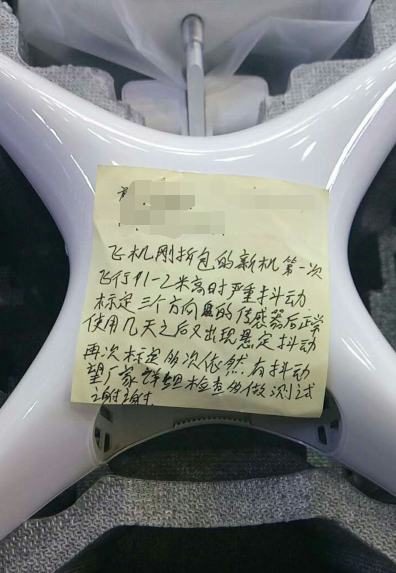 飞机刚拆包的新机第一次
飞行到1-2米高时严重抖动
标定三个方向的传感器后正常
使用几天之后又出现悬定抖动
再次标定的次依然有抖动
望厂家详细检查的做测试
谢谢